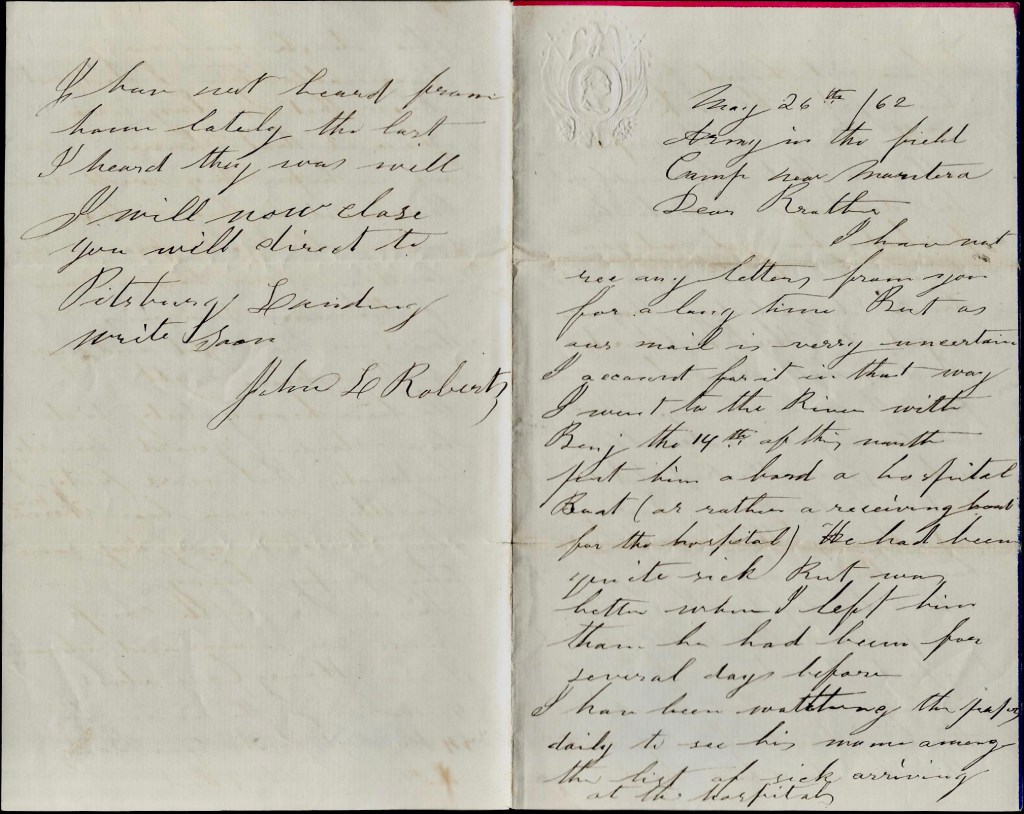 May 26th /62
Army in the field
Camp near Monterea
Dear Brother
I have not
rec any letters from you
for a long time But as
our mail is verry uncertain
I account for it in that way
I went to the River with
Benj the 14th of this month
put him abord a hospital
Boat (or rather a receiving boat
for the hospital) He had been
quite sick But was
better when I left him
than he had been for
several days before
I have been watching the papers
daily to see his name among
the list of sick arriving
at the Hospitals
I have not heard from
home lately the last
I heard they was well
I will now close
you will direct to
Pitsburg Landing
write soon
John L Roberts